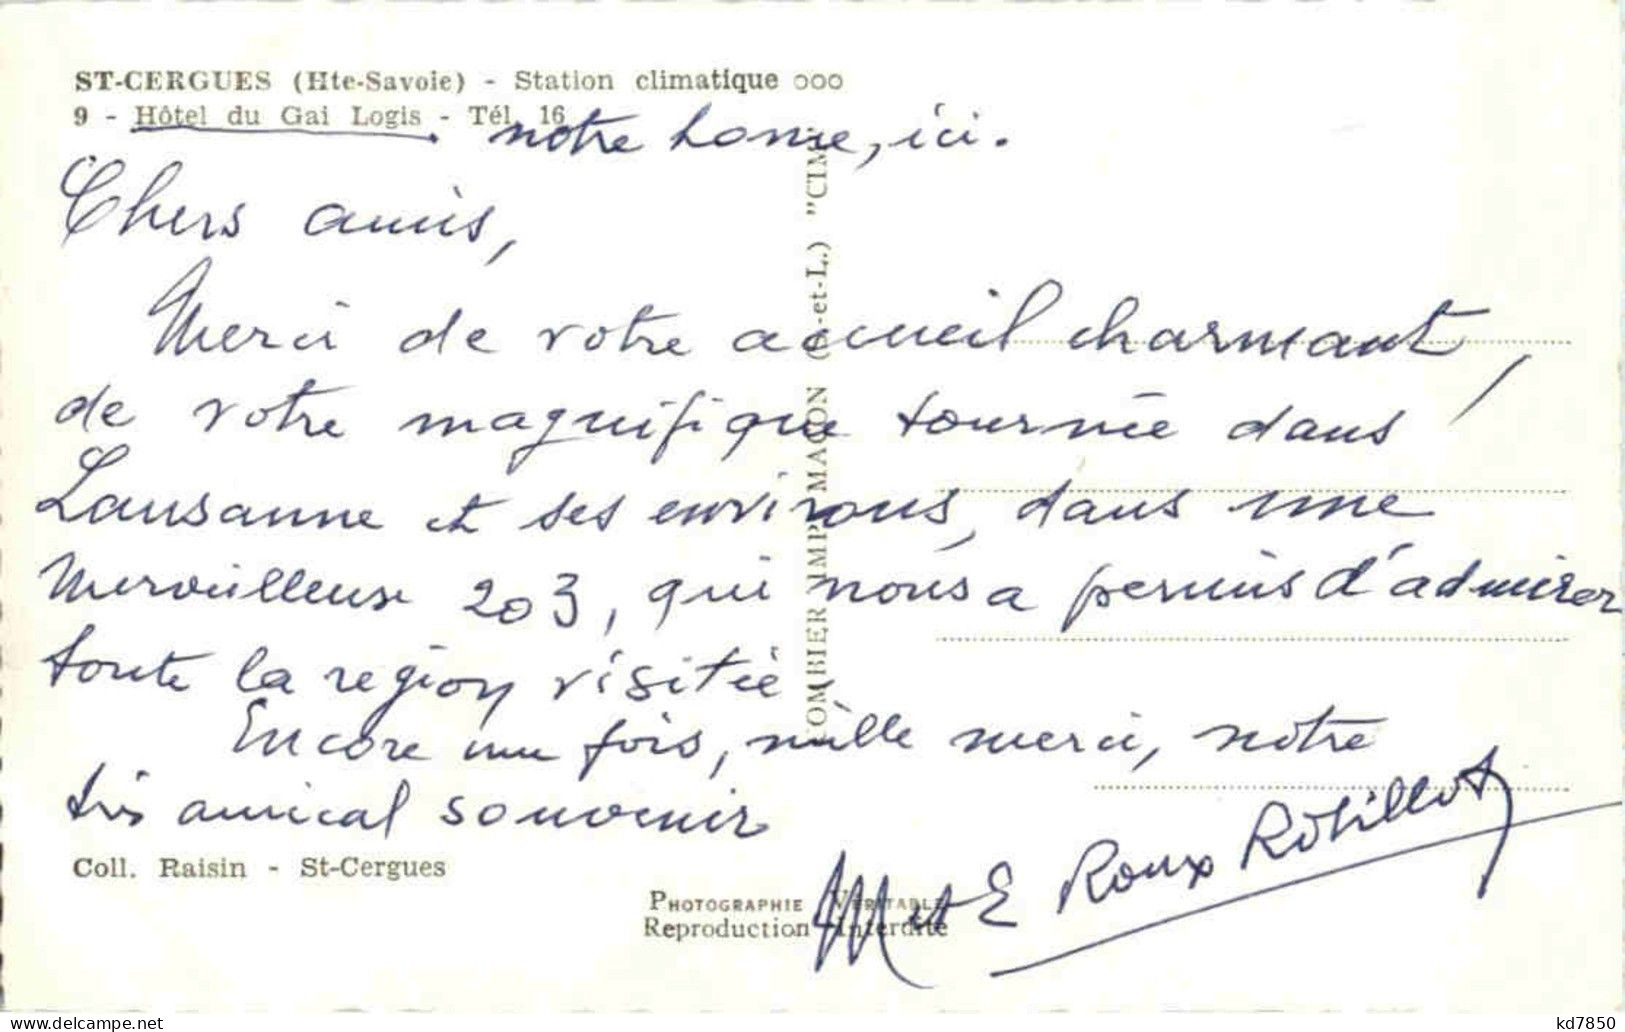 ST-CERGUES (Hte-Savoie) - Station climatique ooo
9 - Hôtel du Gai Logis - Tél. 16
notre home, ici.
Chers amis,
Merci de votre accueil charmant,
de votre magnifique tournée dans
Lausanne et ses environs, dans une
merveilleuse 203, qui nous a permis d'admirer
toute la région visitée.
Encore une fois, mille merci, notre
très amical souvenir
M et E Roux Robillot
Coll. Raisin - St-Cergues
PHOTOGRAPHIE VÉRITABLE
Reproduction Interdite
COMBIER IMP. MACON (S.-et-L.) "CIM
kd7850